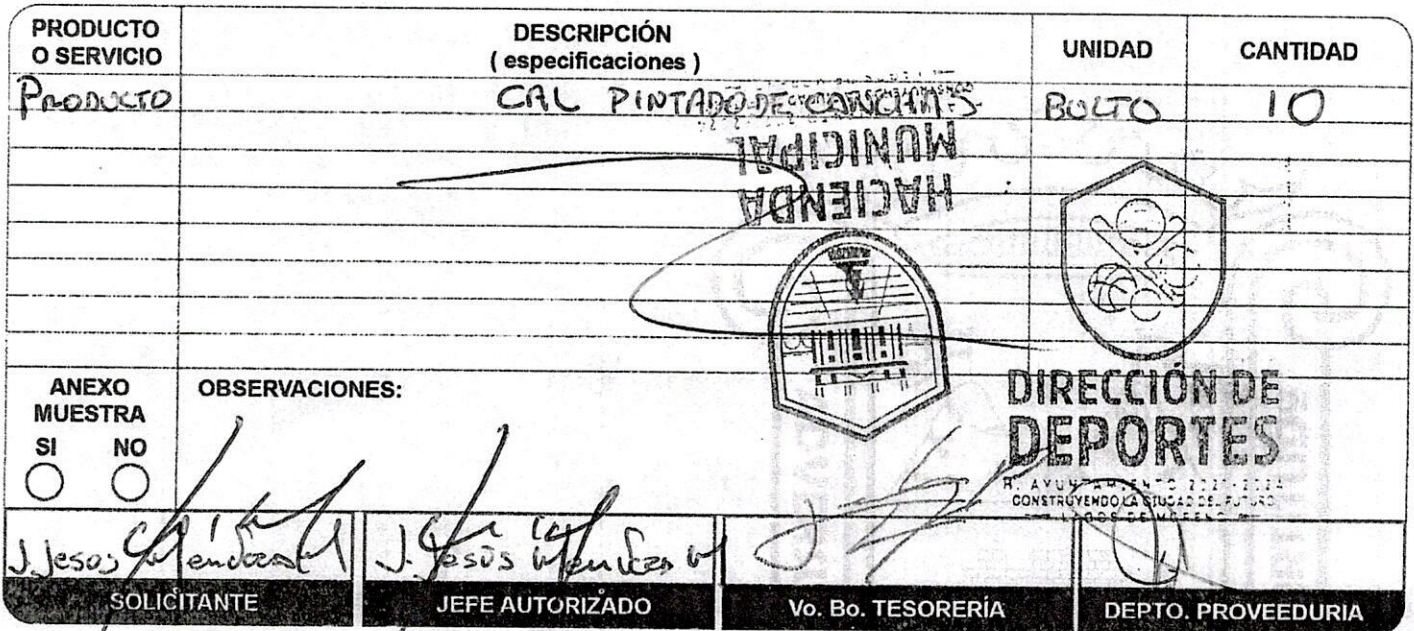 PRODUCTO O SERVICIO
DESCRIPCIÓN ( especificaciones )
UNIDAD
CANTIDAD
PRODUCTO
CAL PINTADO DE CANCHAS
BULTO
10
HACIENDA
MUNICIPAL
ANEXO MUESTRA
SI NO
OBSERVACIONES:
DIRECCIÓN DE
DEPORTES
H. AYUNTAMIENTO 2021-2024
CONSTRUYENDO LA CIUDAD DEL FUTURO
LAGOS DE MORENO
J. Jesus Mendoza M
J. Jesús Mendoza M
SOLICITANTE
JEFE AUTORIZADO
Vo. Bo. TESORERÍA
DEPTO. PROVEEDURIA